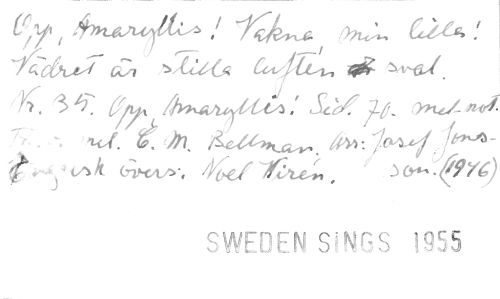 Opp, Amaryllis! Vakna min lilla!
Vädret är stilla luften sval.
Nr. 35. Opp, Amaryllis! Sid. 70. mel-not.
mel. C. M. Bellman. Arr: Josef Jons-
Engelsk övers: Noel Wirén. son. (1946)
SWEDEN SINGS 1955